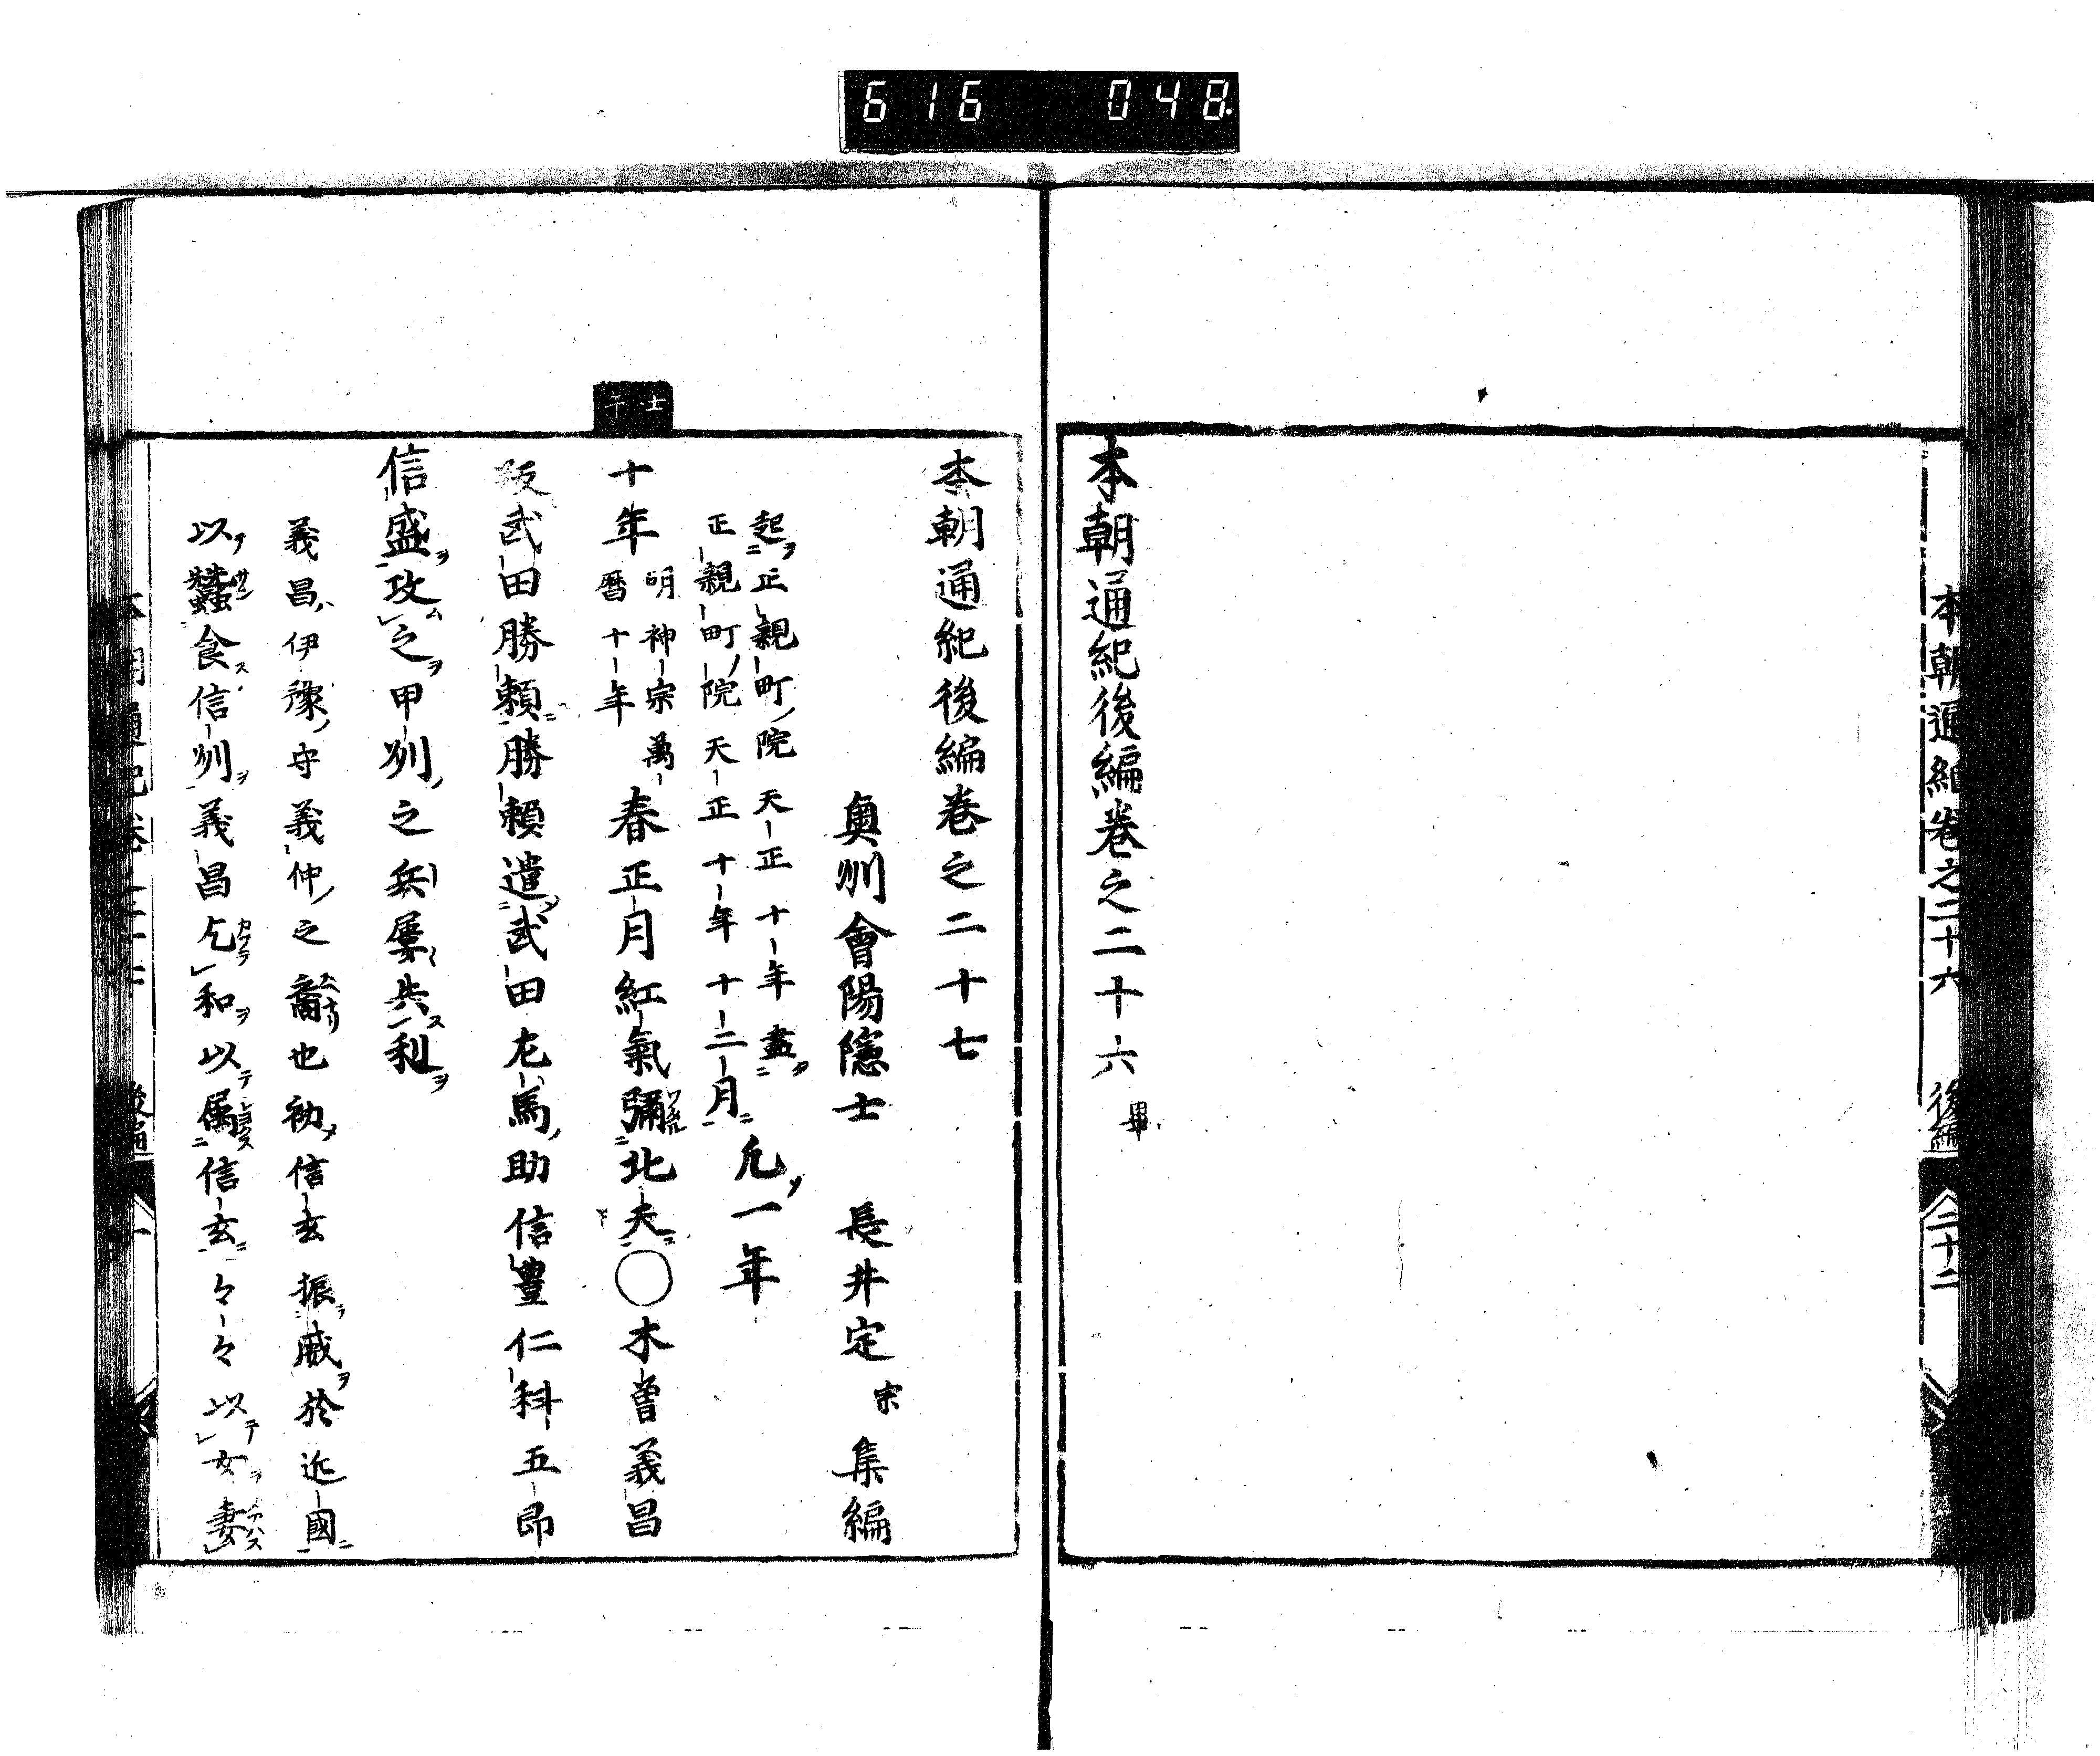 616 048
本朝通紀卷之二十六 後編 二十二
本朝通紀後編卷之二十六 畢
本朝通紀後編卷之二十七
奥州會陽隱士 長井定宗 集編
起正親町院天正十年盡
正親町院天正十年十二月 凡一年
壬午
十年 明神宗萬
曆十年 春正月紅氣彌北天○木曽義昌
叛武田勝頼勝頼遣武田左馬助信豊仁科五郎
信盛攻之甲州之兵屢失利
義昌伊豫守義仲之裔也初信玄振威於近國
以蠶食信州義昌乞和以属信玄々々以女妻